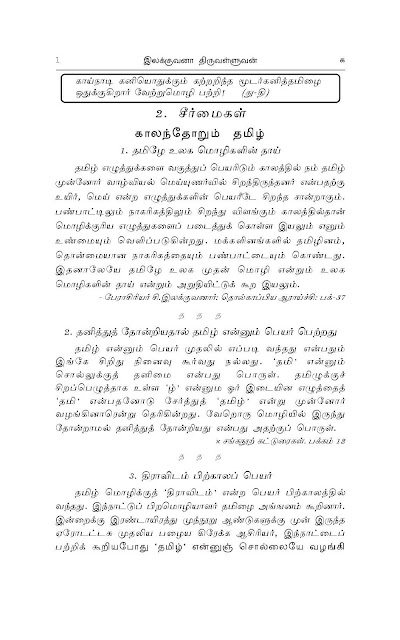 1 இலக்குவனா திருவள்ளுவன் க
காய்நாடி கனியொதுக்கும் கற்றறிந்த மூடர்கனித்தமிழை
ஒதுக்குகிறார் வேற்றுமொழி பற்றி! (து-தி)
2. சீர்மைகள்
காலந்தோறும் தமிழ்
1. தமிழே உலக மொழிகளின் தாய்
தமிழ் எழுத்துக்களை வகுத்துப் பெயரிடும் காலத்தில் நம் தமிழ்
முன்னோர் வாழ்வியல் மெய்யுணர்வில் சிறந்திருந்தனர் என்பதற்கு
உயிர், மெய் என்ற எழுத்துக்களின் பெயரீடே சிறந்த சான்றாகும்.
பண்பாட்டிலும் நாகரிகத்திலும் சிறந்து விளங்கும் காலத்தில்தான்
மொழிக்குரிய எழுத்துகளைப் படைத்துக் கொள்ள இயலும் எனும்
உண்மையும் வெளிப்படுகின்றது. மக்களினங்களில் தமிழினம்,
தொன்மையான நாகரிகத்தையும் பண்பாட்டையும் கொண்டது.
இதனாலேயே தமிழே உலக முதன் மொழி என்றும் உலக
மொழிகளின் தாய் என்றும் அறுதியிட்டுக் கூற இயலும்.
- பேராசிரியர் சி.இலக்குவனார்: தொல்காப்பிய ஆராய்ச்சி: பக்-37
2. தனித்துத் தோன்றியதால் தமிழ் என்னும் பெயர் பெற்றது
தமிழ் என்னும் பெயர் முதலில் எப்படி வந்தது என்பதும்
இங்கே சிறிது நினைவு கூர்வது நல்லது. 'தமி' என்னும்
சொல்லுக்குத் தனிமை என்பது பொருள். தமிழுக்குச்
சிறப்பெழுத்தாக உள்ள 'ழ்' என்னும ஒர் இடையின எழுத்தைத்
'தமி' என்பதனோடு சேர்த்துத் 'தமிழ்' என்று முன்னோர்
வழங்கினாரென்று தெரிகின்றது. வேறொரு மொழியில் இருந்து
தோன்றாமல் தனித்துத் தோன்றியது என்பது அதற்குப் பொருள்.
× சங்கநூற் கட்டுரைகள். பக்கம் 12
3. திராவிடம் பிற்காலப் பெயர்
தமிழ் மொழிக்குத் 'திராவிடம்' என்ற பெயர் பிற்காலத்தில்
வந்தது. இந்நாட்டுப் பிறமொழியாளர் தமிழை அங்ஙனம் கூறினார்.
இன்றைக்கு இரண்டாயிரத்து முந்நூறு ஆண்டுகளுக்கு முன் இருந்த
ஏரோடாட்டசு முதலிய பழைய கிரேக்க ஆசிரியர், இந்நாட்டைப்
பற்றிக் கூறியபோது 'தமிழ்' என்னுஞ் சொல்லையே வழங்கி